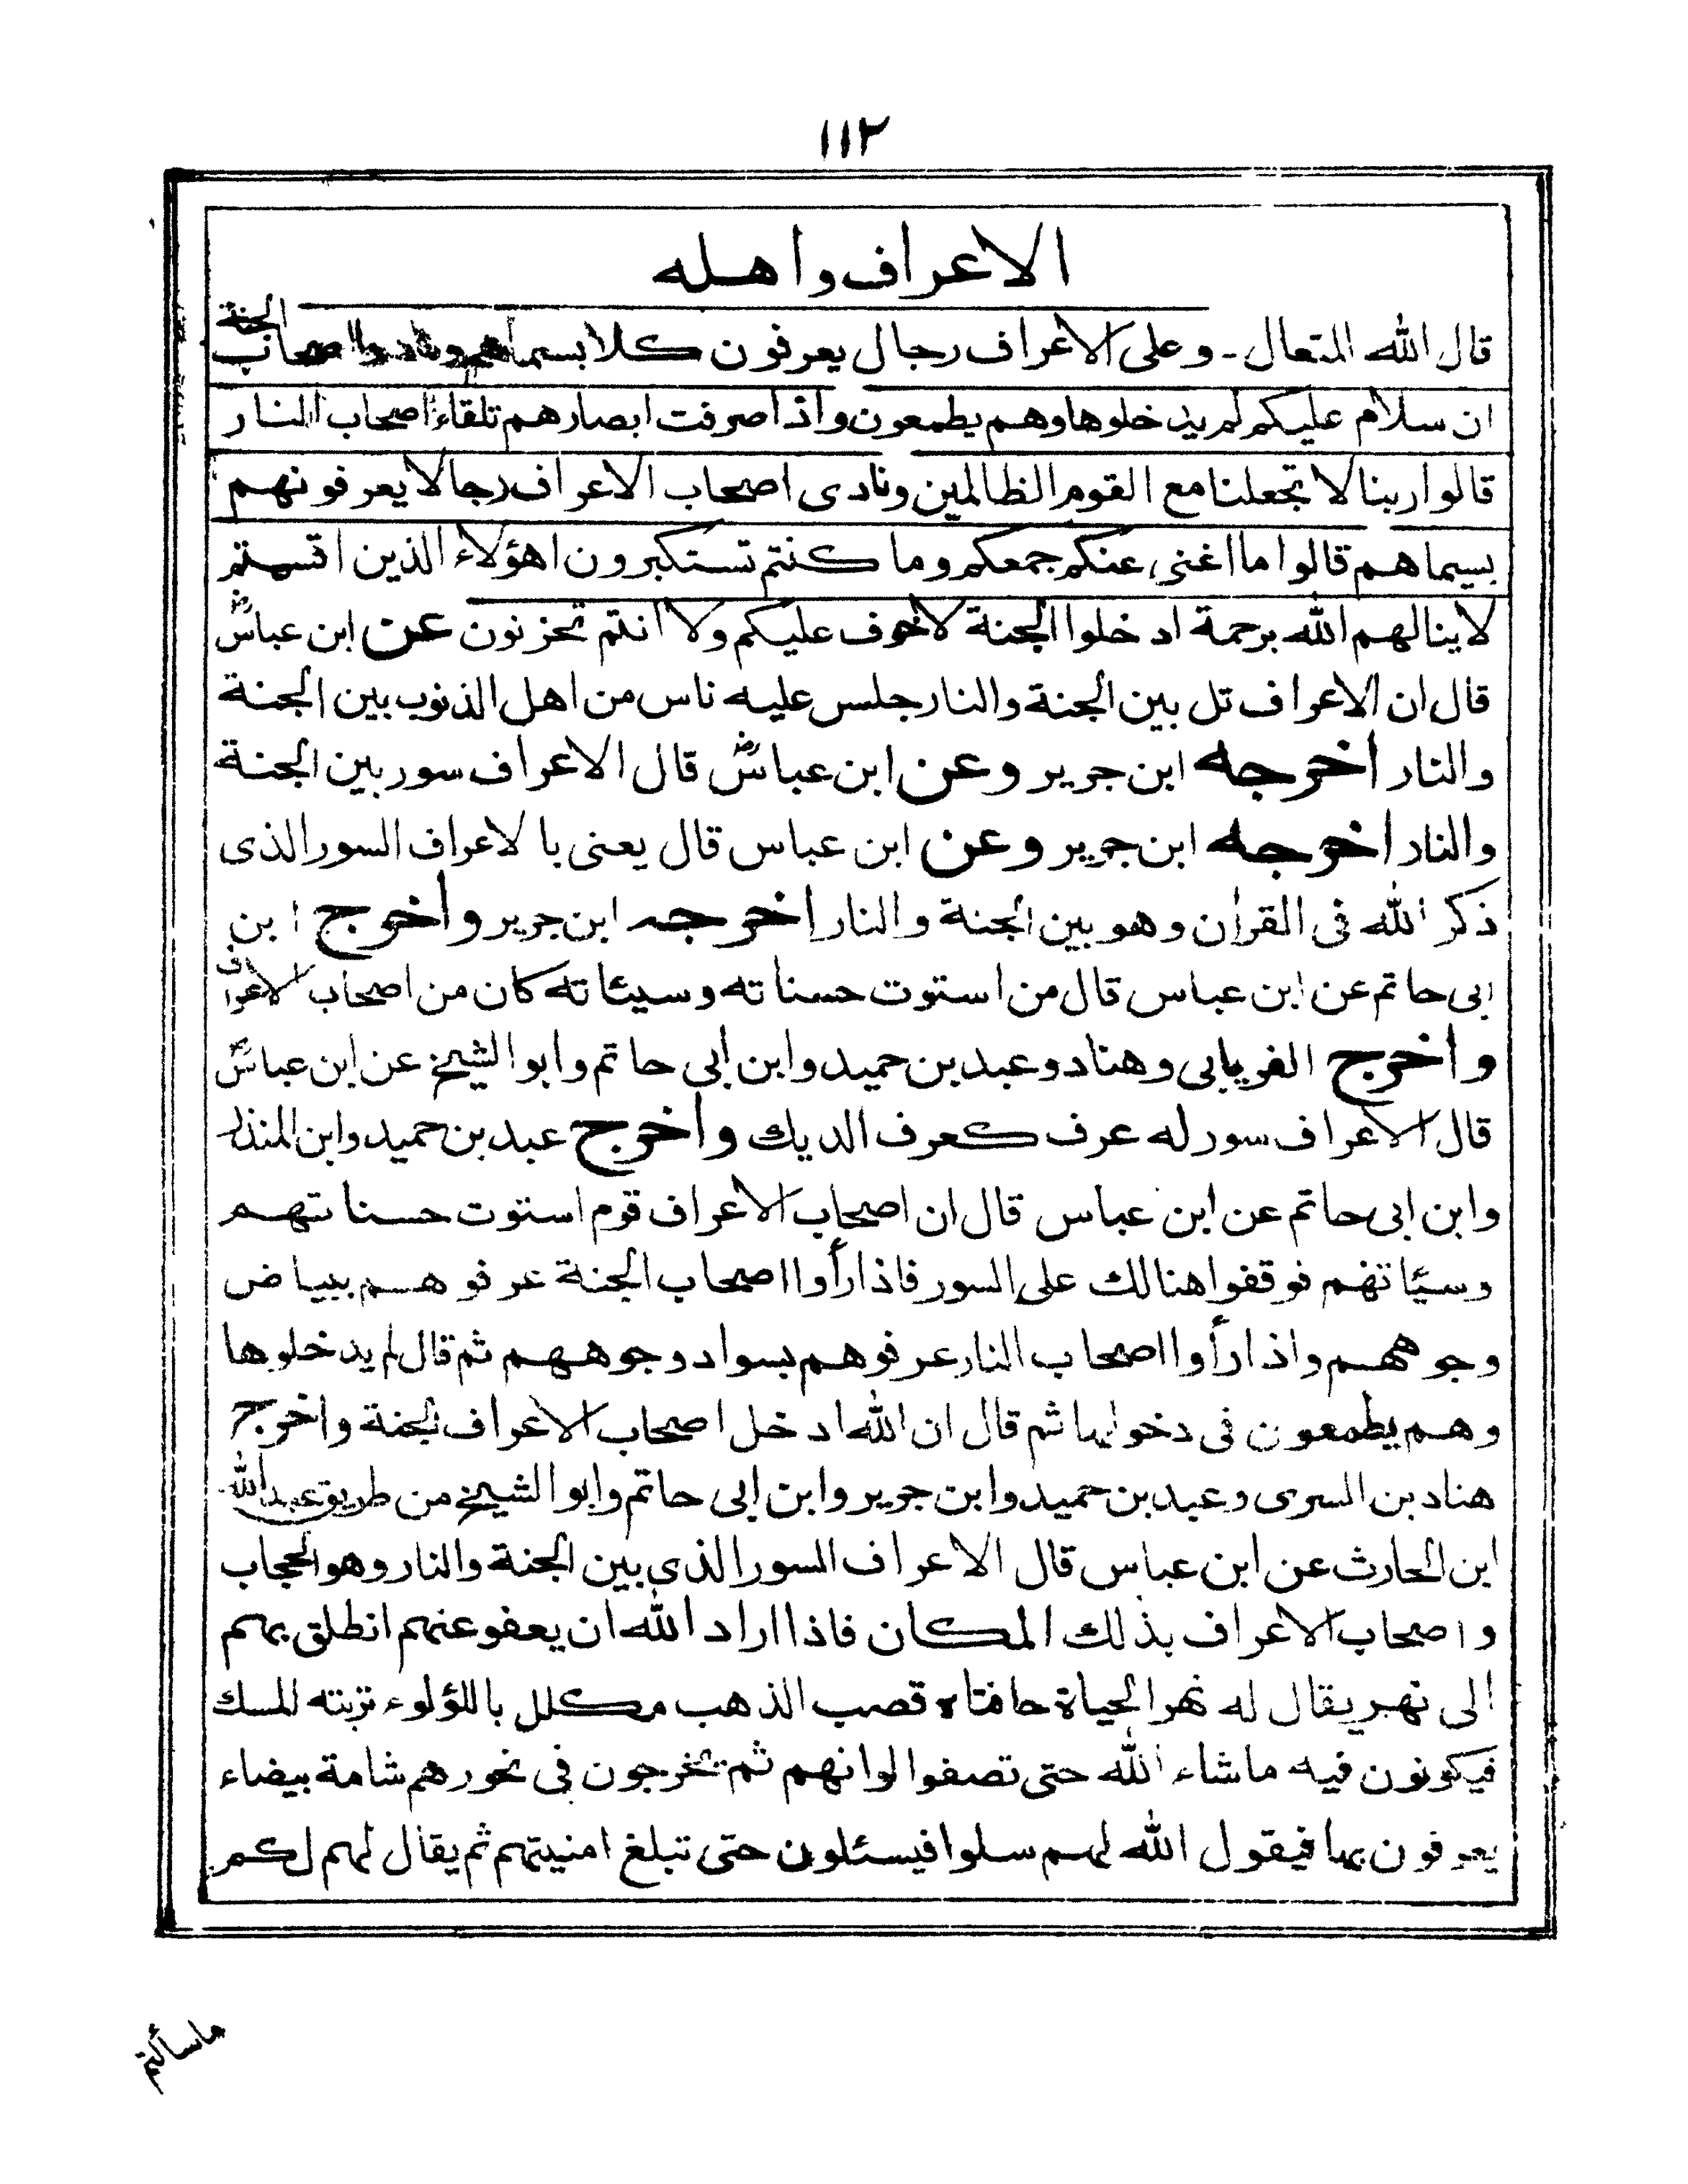 ١١٢
الاعراف واهله
قال الله المتعال - وعلى الاعراف رجال يعرفون كلا بسيماهم ونادوا اصحاب الجنة
ان سلام عليكم لم يدخلوها وهم يطمعون واذا صرفت ابصارهم تلقاء اصحاب النار
قالوا ربنا لا تجعلنا مع القوم الظالمين ونادى اصحاب الاعراف رجالا يعرفونهم
بسيماهم قالوا ما اغنى عنكم جمعكم وما كنتم تستكبرون اهؤلاء الذين اقسمتم
لا ينالهم الله برحمة ادخلوا الجنة لاخوف عليكم ولا انتم تحزنون عن ابن عباسؓ
قال ان الاعراف تل بين الجنة والنار جلس عليه ناس من اهل الذنوب بين الجنة
والنار اخرجه ابن جرير وعن ابن عباسؓ قال الاعراف سور بين الجنة
والنار اخرجه ابن جرير وعن ابن عباس قال يعنى بالاعراف السور الذى
ذكر الله فى القران وهو بين الجنة والنار اخرجه ابن جرير واخرج ابن
ابى حاتم عن ابن عباس قال من استوت حسناته وسيئاته كان من اصحاب الاعراف
واخرج الفريابى وهناد وعبد بن حميد وابن ابى حاتم وابو الشيخ عن ابن عباسؓ
قال الاعراف سور له عرف كعرف الديك واخرج عبد بن حميد وابن المنذر
وابن ابى حاتم عن ابن عباس قال ان اصحاب الاعراف قوم استوت حسناتهم
وسيئاتهم فوقفوا هنالك على السور فاذا رأوا اصحاب الجنة عرفوهم ببياض
وجوههم واذا رأوا اصحاب النار عرفوهم بسواد وجوههم ثم قال لم يدخلوها
وهم يطمعون فى دخولها ثم قال ان الله ادخل اصحاب الاعراف الجنة واخرج
هناد بن السرى وعبد بن حميد وابن جرير وابن ابى حاتم وابو الشيخ من طريق عبد الله
ابن الحارث عن ابن عباس قال الاعراف السور الذى بين الجنة والنار وهو الحجاب
واصحاب الاعراف بذلك المكان فاذا اراد الله ان يعفو عنهم انطلق بهم
الى نهر يقال له نهر الحياة حافتاه قصب الذهب مكلل باللؤلوء تربته المسك
فيكونون فيه ماشاء الله حتى تصفوا لوانهم ثم يخرجون فى نحورهم شامة بيضاء
يعرفون بها فيقول الله لهم سلوا فيسئلون حتى تبلغ امنيتهم ثم يقال لهم لكم
ماسألتم